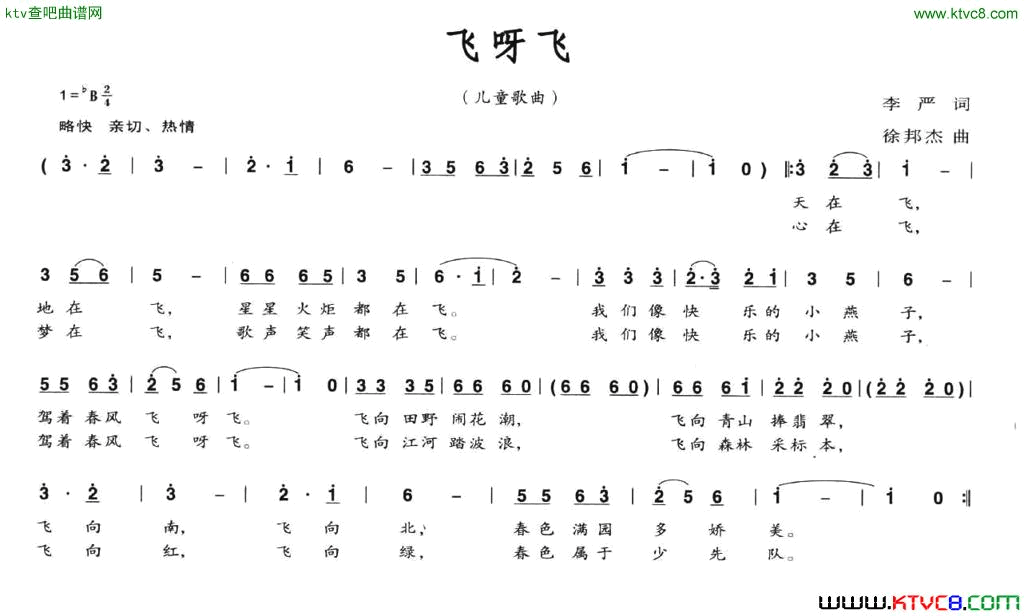 ktv查吧曲谱网
www.ktvc8.com
飞呀飞
（儿童歌曲）
1=♭B 2/4
李严词
略快 亲切、热情
徐邦杰曲
( 3̇ · 2̇ | 3̇ – | 2̇ · 1̇ | 6 – | 3 5 6 3̇ | 2̇ 5 6 | 1̇ – | 1̇ 0 ) ‖: 3̇ 2̇ 3̇ | 1̇ – |
天在飞，
心在飞，
3 5 6 | 5 – | 6 6 6 5 | 3 5 | 6 · 1̇ | 2̇ – | 3̇ 3̇ 3̇ | 2̇ · 3̇ 2̇ 1̇ | 3 5 | 6 – |
地在飞，星星火炬都在飞。我们像快乐的小燕子，
梦在飞，歌声笑声都在飞。我们像快乐的小燕子，
5 5 6 3̇ | 2̇ 5 6 | 1̇ – | 1̇ 0 | 3 3 3 5 | 6 6 6 0 | ( 6 6 6 0 ) | 6 6 6 1̇ | 2̇ 2̇ 2̇ 0 | ( 2̇ 2̇ 2̇ 0 ) |
驾着春风飞呀飞。飞向田野闹花潮，飞向青山捧翡翠，
驾着春风飞呀飞。飞向江河踏波浪，飞向森林采标本，
3̇ · 2̇ | 3̇ – | 2̇ · 1̇ | 6 – | 5 5 6 3̇ | 2̇ 5 6 | 1̇ – | 1̇ 0 :‖
飞向南，飞向北，春色满园多娇美。
飞向红，飞向绿，春色属于少先队。
www.KTVC8.com